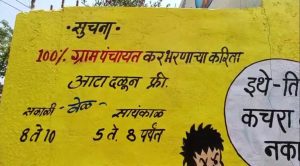 -: सुचना :-
100% ग्रामपंचायत कर भरणाचा करिता
आटा दळून फ्री.
-: वेळ :-
सकाळी सायंकाळ
8 ते 10 5 ते 8 पर्यंत
इथे-ति
कचरा
नका